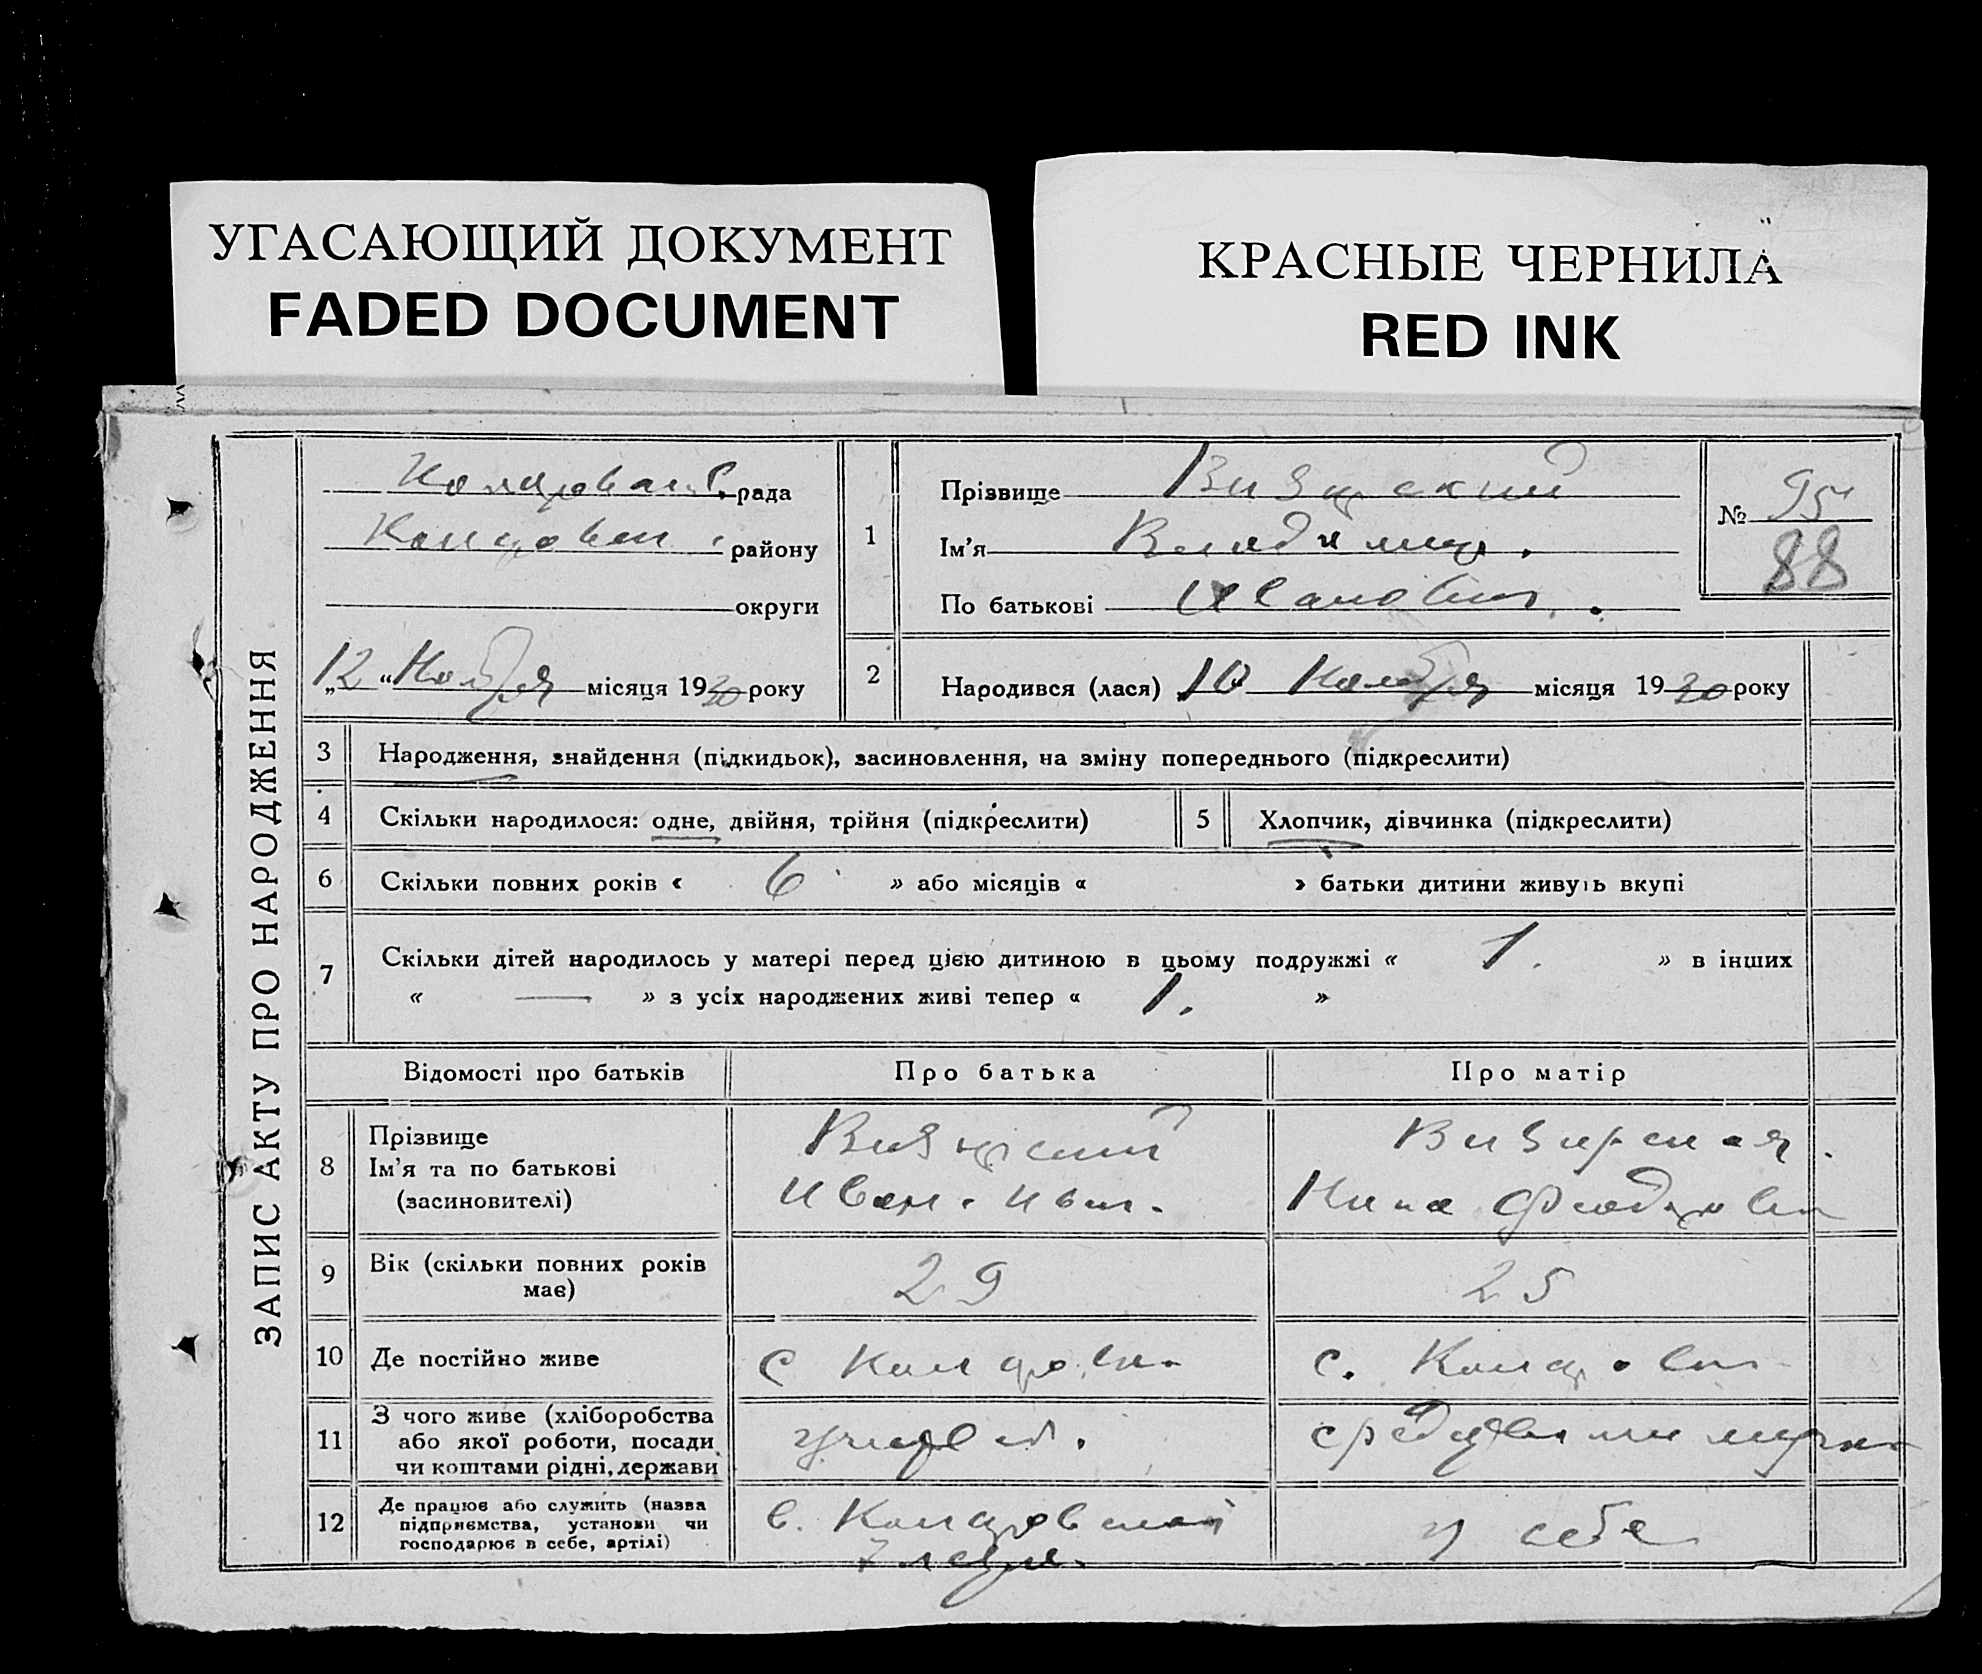 УГАСАЮЩИЙ ДОКУМЕНТ
FADED DOCUMENT
КРАСНЫЕ ЧЕРНИЛА
RED INK
ЗАПИС АКТУ ПРО НАРОДЖЕННЯ
рада
району
округи
„12“ Ноября місяця 1930 року
1
Прізвище
Ім'я Владимир.
По батькові Иванович.
№ 95
88
2
Народився (лася) 10 Ноября місяця 1930 року
3 Народження, знайдення (підкидьок), засиновлення, на зміну попереднього (підкреслити)
4 Скільки народилося: одне, двійня, трійня (підкреслити)
5 Хлопчик, дівчинка (підкреслити)
6 Скільки повних років « 6 » або місяців « » батьки дитини живуть вкупі
7 Скільки дітей народилось у матері перед цією дитиною в цьому подружжі « 1. » в інших
« — » з усіх народжених живі тепер « 1. »
Відомості про батьків Про батька Про матір
8
Прізвище
Ім'я та по батькові
(засиновителі)
Иван. Иван.
Нина
9
Вік (скільки повних років
має)
29
25
10 Де постійно живе
с
с.
11
З чого живе (хліборобства
або якої роботи, посади
чи коштами рідні, держави
учител.
средствами мужа
12
Де працює або служить (назва
підприємства, установи чи
господарює в себе, артілі)
в.
у себе